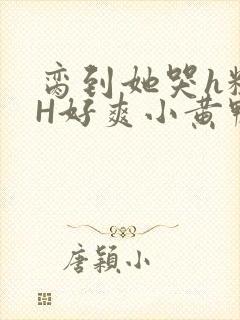 脔到她哭h粗
H好爽小黄鸭
唐颖小